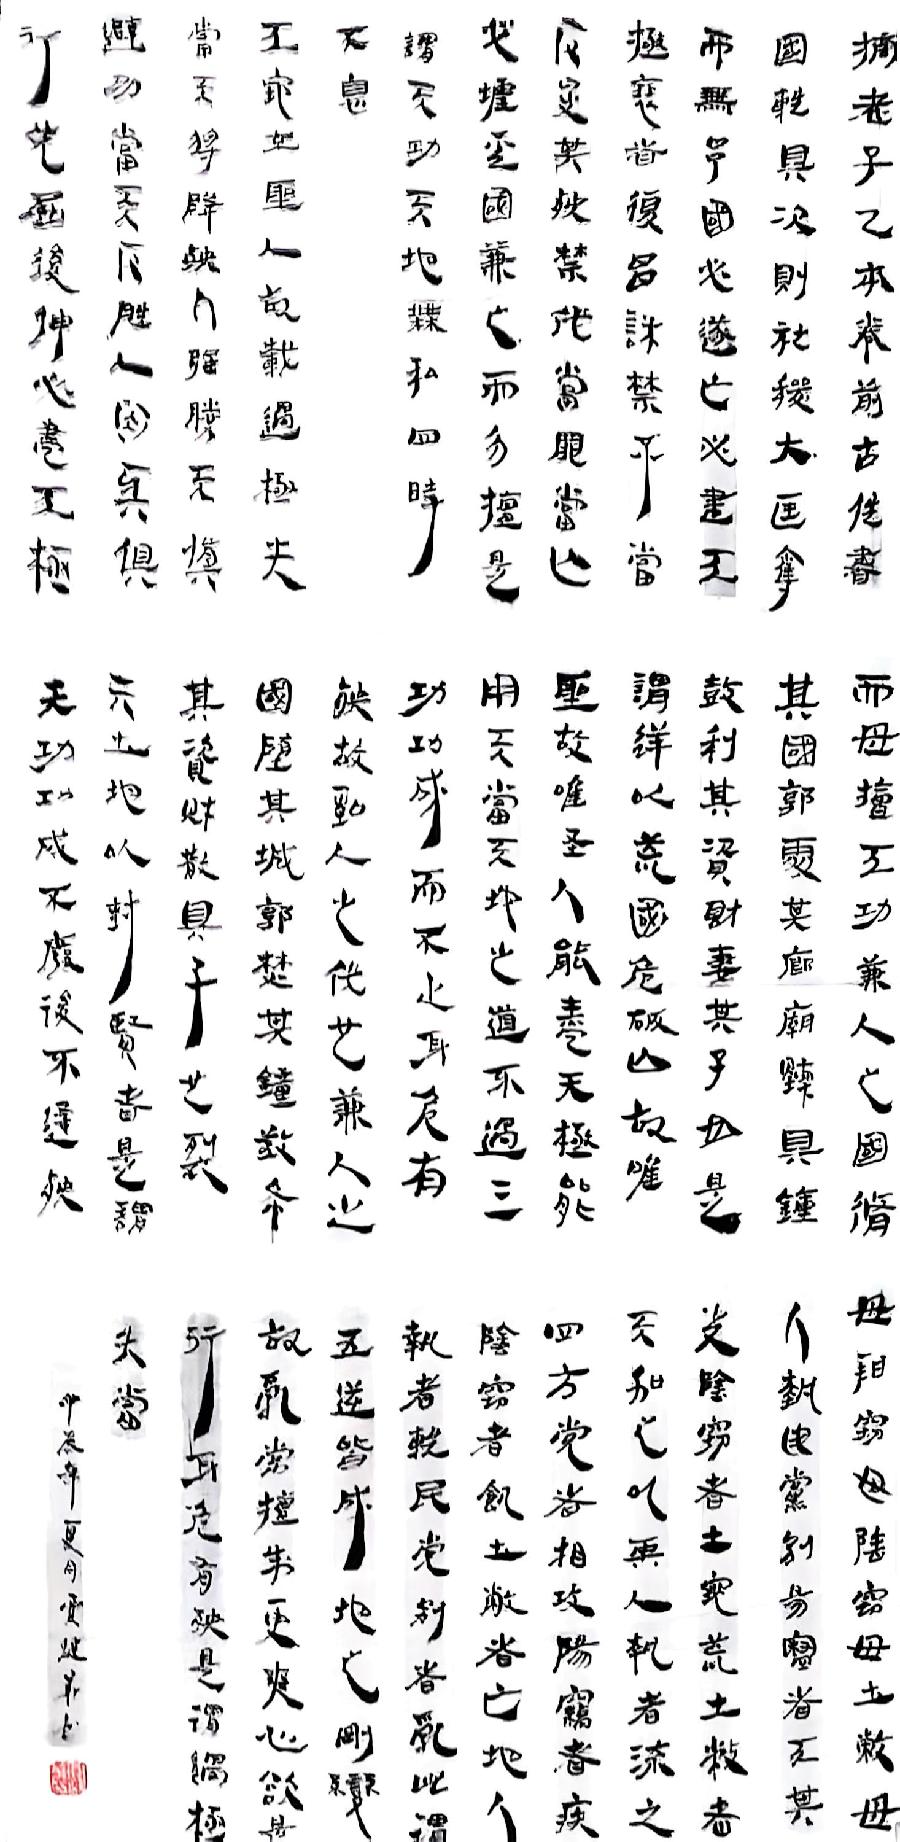 摘老子乙本卷前古佚書
國軼具次則社稷大匡奪
而無予國必遂亡必盡天
極衰者復昌誅禁不當
反受其殃禁伐當罪當亡
必墟其國兼之而勿擅是
謂天功天地無私四時
不息
天定立聖人故載過極失
當天將降殃人強勝天慎
避勿當天反勝人因與俱
行先屈後伸必盡天極
而毋擅天功兼人之國脩
其國郭處其廊廟聽其鐘
鼓利其資財妻其子女是
謂逆以荒國危破亡故唯
聖故唯圣人能盡天極能
用天當天地之道不過三
功功成而不止身危有
殃故聖人之伐也兼人之
國墮其城郭焚其鐘鼓布
其資財散其子女裂
其土地以封賢者是謂
天功功成不廢後不逢殃
毋陽竊毋陰竊毋土敝毋
人執毋黨別陽竊者天其
光陰竊者土地荒土敝者
天加之以兵人執者流之
四方党者相攻陽竊者疾
陰竊者飢土敝者亡地人
執者軼民党別者亂此謂
五逆皆成地之剛
故亂常擅制更爽心欲是
行身危有殃是謂過極
失當
年夏月